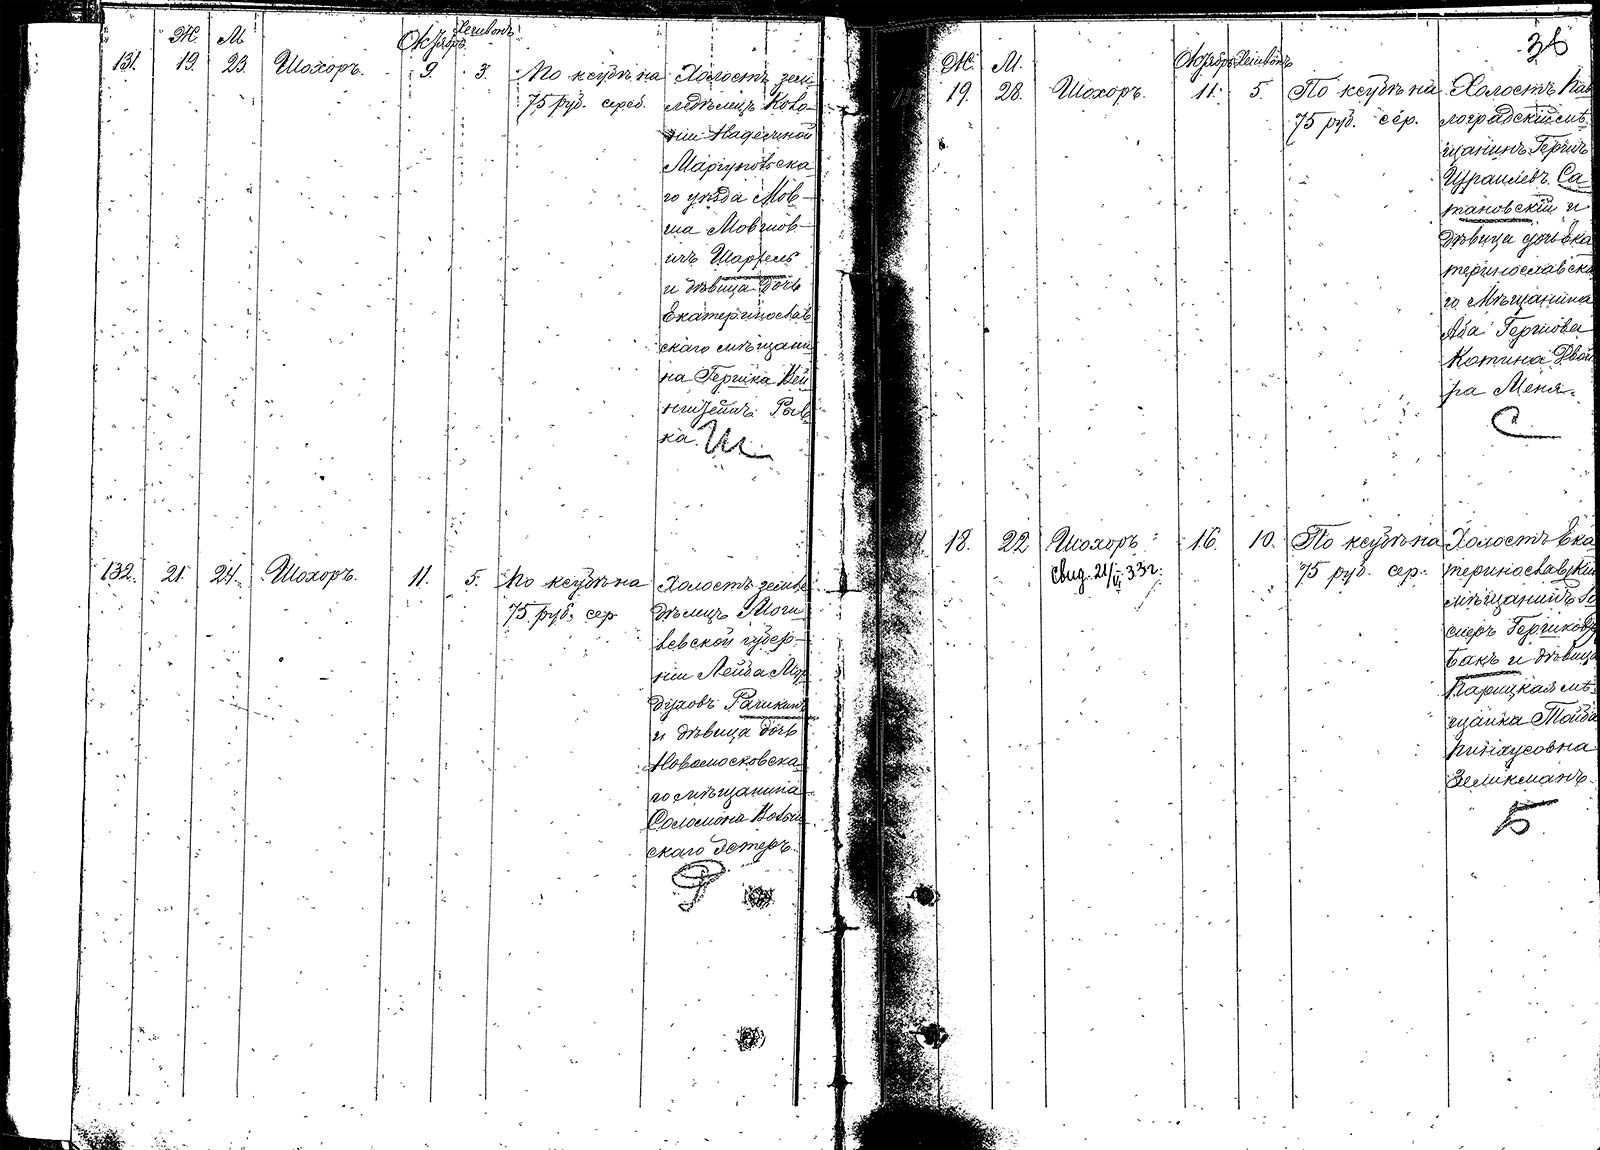 Ж. М Октябрь Хешвонъ
131. 19. 23. Шохоръ. 9. 3. По ксубѣ на
75 руб. сереб.
Холостъ зем-
ледѣлецъ Коло-
ніи Надежной
Маріупольска-
го уѣзда Мов-
ша Мовшов-
ичъ Шарфель
и дѣвица дочь
Екатеринослав
скаго мѣщани
на Гершка Вей
Рыв
ка.
Ш
132. 21. 24. Шохоръ. 11. 5. По ксубѣ на
75 руб. сер
Холостъ земле
дѣлецъ Моги
левской губер-
ніи Лейба Мор
духовъ Рашкинъ
и дѣвица дочь
Новомосковска-
го мѣщанина
Соломона
скаго Эстеръ.
Р
36
Ж. М. Октябрь Хешвонъ
19. 28. Шохоръ. 11. 5. По ксубѣ на
75 руб. сер.
Холостъ Пав
лоградскій мѣ
щанинъ Гершъ
Израилевъ Са-
тановскій и
дѣвица дочь Ека
теринославска
го Мѣщанина
Аба Гершова
Котина Двой
ра Меня.
С
18. 22 Шохоръ 16. 10. По ксубѣ на
свид. 21/VI 33 г.
75 руб. сер.
Холостъ Ека
теринославскій
мѣщанинъ
Гершковъ
Бакъ и дѣвица
мѣ-
щанка Тойба
Пинхусовна
Зеликманъ.
Б